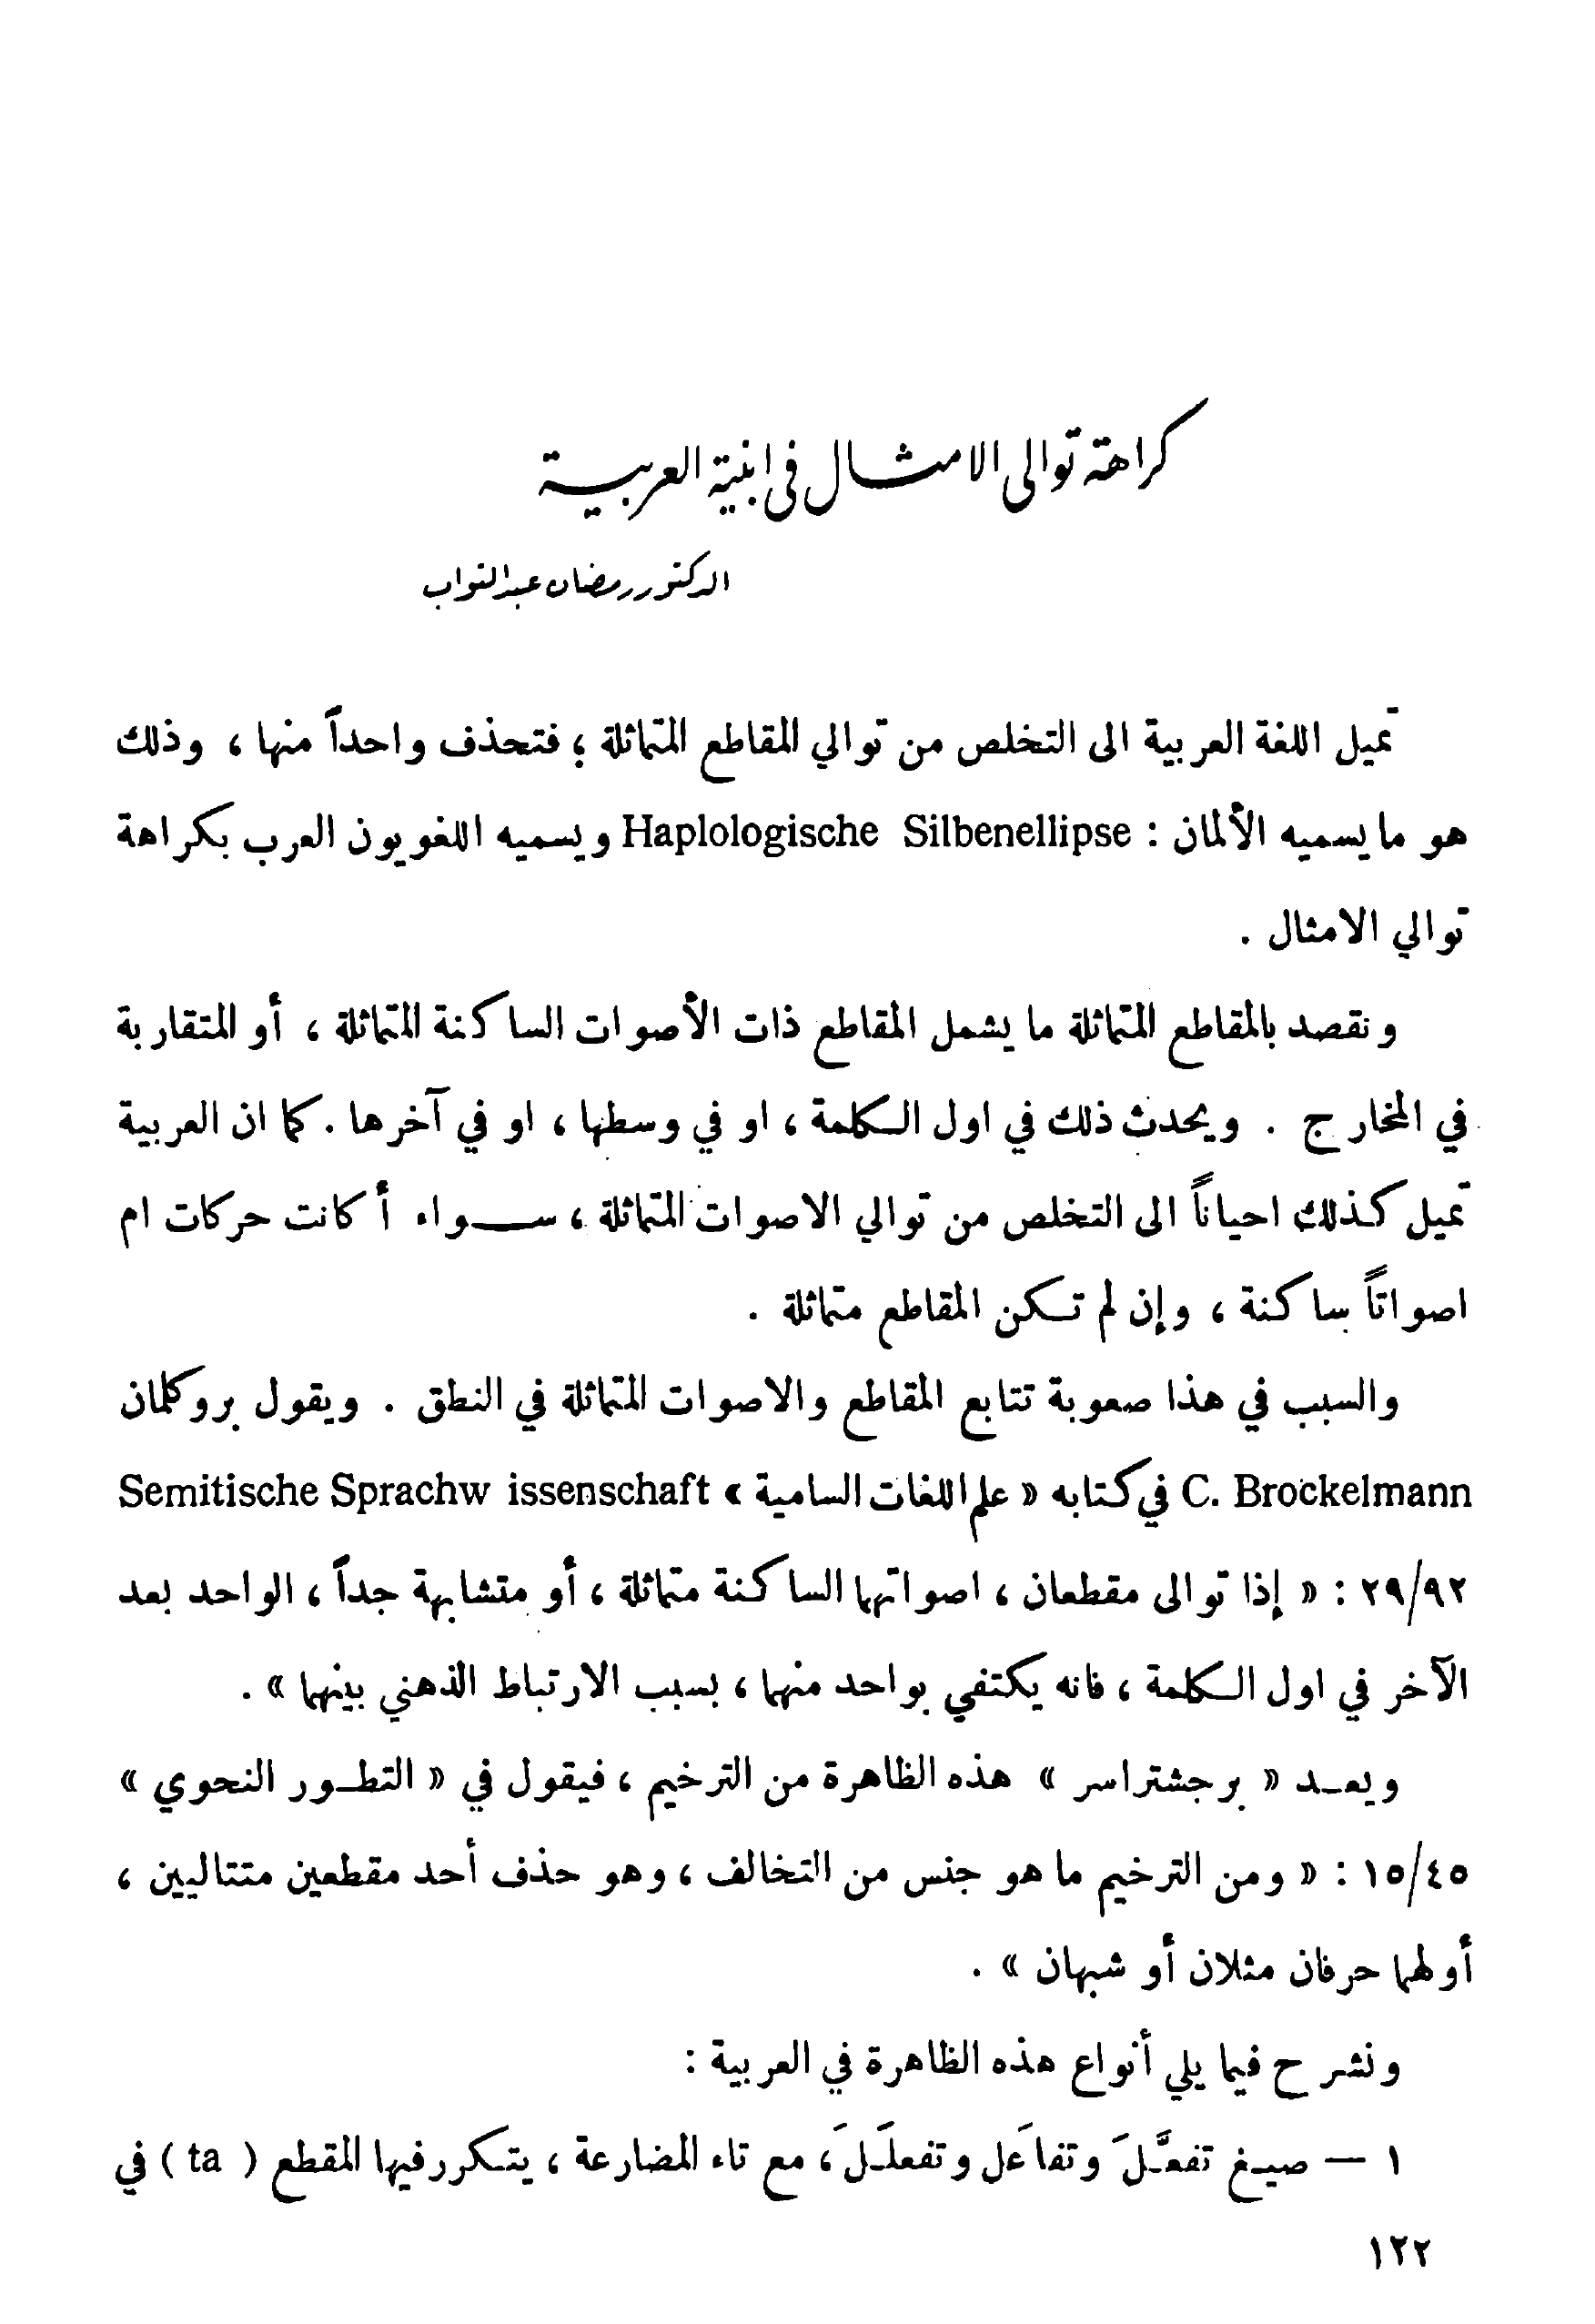 كراهة توالى الامثال فى ابنية العربية
الدكتور رمضان عبد التواب
تميل اللغة العربية الى التخلص من توالي المقاطع المتماثلة ؛ فتحذف واحداً منها ، وذلك
هو ما يسميه الألمان : Haplologische Silbenellipse ويسميه اللغويون العرب بكراهة
توالي الامثال .
ونقصد بالمقاطع المتماثلة ما يشمل المقاطع ذات الأصوات الساكنة المتماثلة ، أو المتقاربة
في المخارج . ويحدث ذلك في اول الكلمة ، او في وسطها ، او في آخرها . كما ان العربية
تميل كذلك احياناً الى التخلص من توالي الاصوات المتماثلة ، سواء أكانت حركات ام
اصواتاً ساكنة ، وإن لم تكن المقاطع متماثلة .
والسبب في هذا صعوبة تتابع المقاطع والاصوات المتماثلة في النطق . ويقول بروكلمان
C. Brockelmann في كتابه « علم اللغات السامية » Semitische Sprachw issenschaft
٢٩/٩٢ : « إذا توالى مقطعان ، اصواتهما الساكنة متماثلة ، أو متشابهة جداً ، الواحد بعد
الآخر في اول الكلمة ، فانه يكتفي بواحد منهما ، بسبب الارتباط الذهني بينهما » .
ويعد « برجشتراسر » هذه الظاهرة من الترخيم ، فيقول في « التطور النحوي »
١٥/٤٥ : « ومن الترخيم ما هو جنس من التخالف ، وهو حذف أحد مقطعين متتاليين ،
أولهما حرفان مثلان أو شبهان » .
ونشرح فيما يلي أنواع هذه الظاهرة في العربية :
١ — صيغ تفعَّلَ وتفاعَل وتفعلَلَ ، مع تاء المضارعة ، يتكرر فيها المقطع ( ta ) في
١٢٢